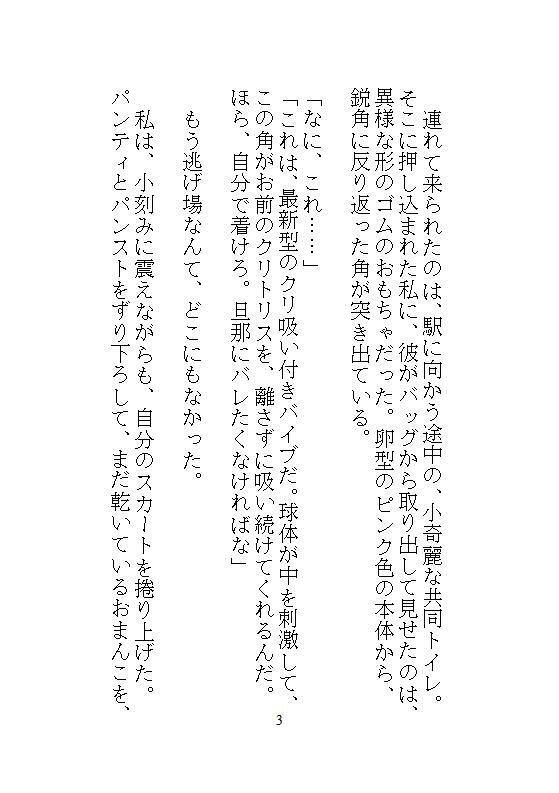 連れて来られたのは、駅に向かう途中の、小奇麗な共同トイレ。
そこに押し込まれた私に、彼がバッグから取り出して見せたのは、
異様な形のゴムのおもちゃだった。卵型のピンク色の本体から、
鋭角に反り返った角が突き出ている。
「なに、これ……」
「これは、最新型のクリ吸い付きバイブだ。球体が中を刺激して、
この角がお前のクリトリスを、離さずに吸い続けてくれるんだ。
ほら、自分で着けろ。旦那にバレたくなければな」
　もう逃げ場なんて、どこにもなかった。
　私は、小刻みに震えながらも、自分のスカートを捲り上げた。
パンティとパンストをずり下ろして、まだ乾いているおまんこを、
3